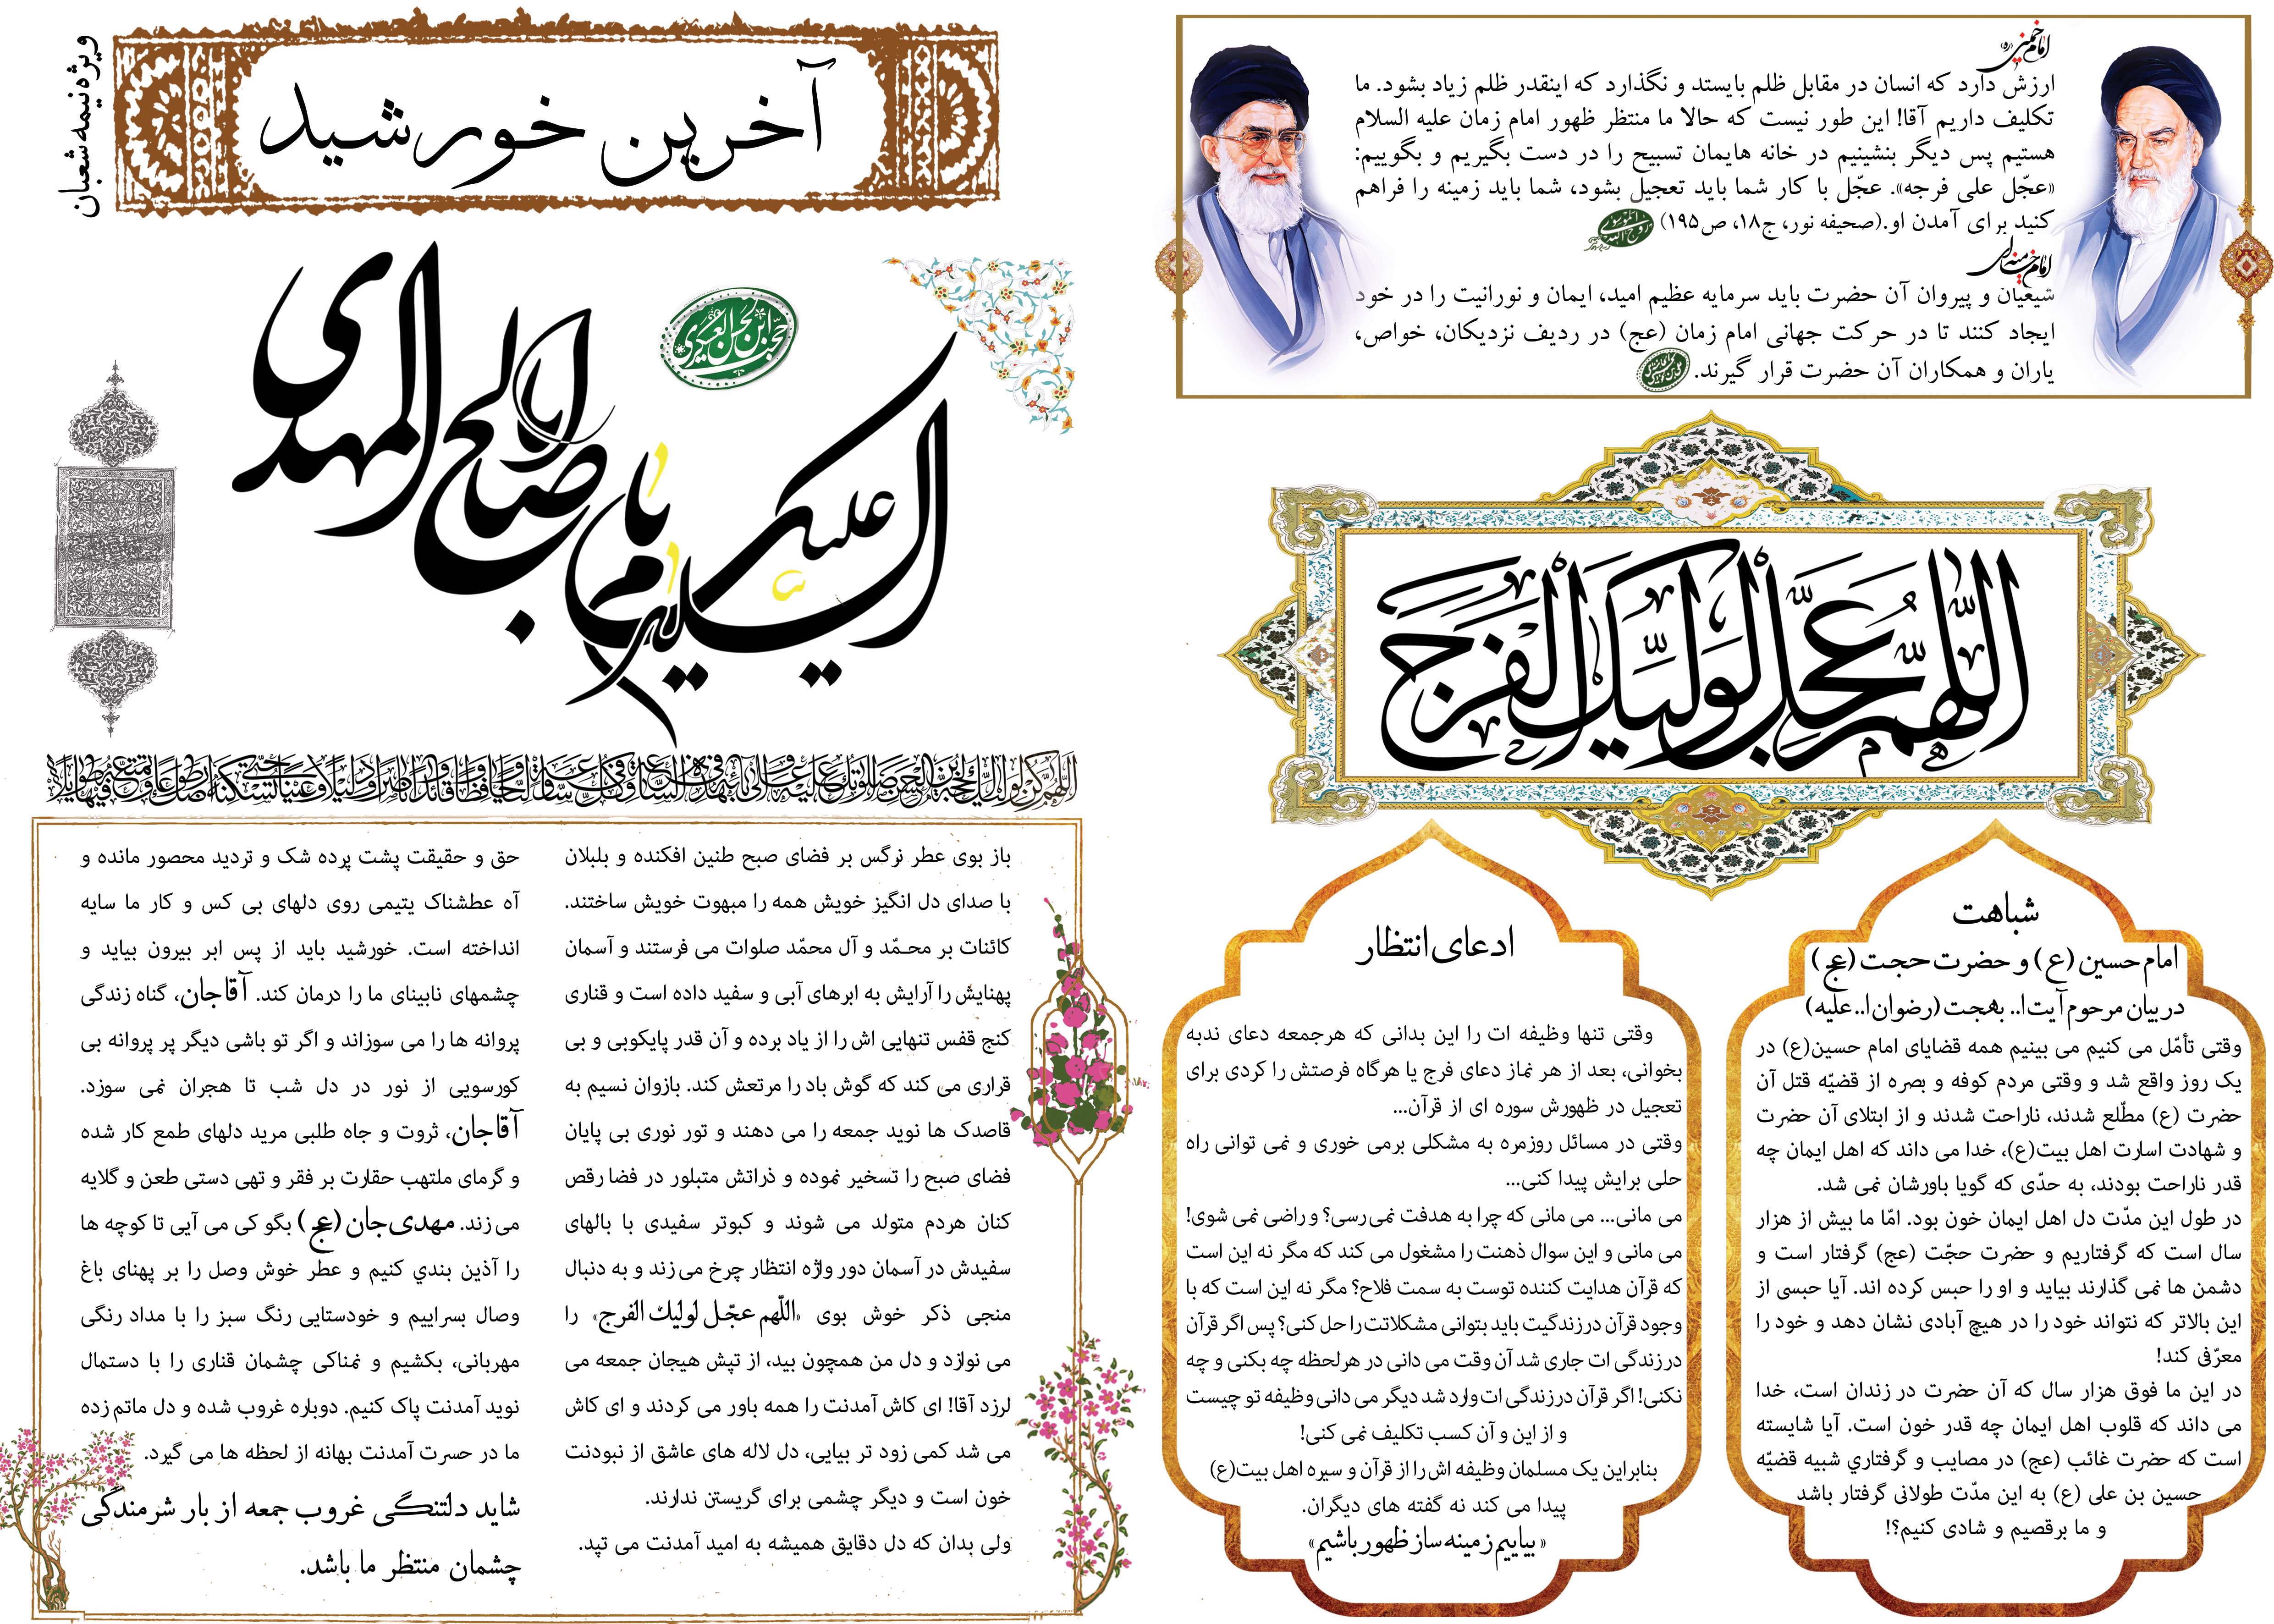 امام خمینی (ره)
ارزش دارد که انسان در مقابل ظلم بایستد و نگذارد که اینقدر ظلم زیاد بشود. ما
تکلیف داریم آقا! این طور نیست که حالا ما منتظر ظهور امام زمان علیه السلام
هستیم پس دیگر بنشینیم در خانه هایمان تسبیح را در دست بگیریم و بگوییم:
«عجّل علی فرجه». عجّل با کار شما باید تعجیل بشود، شما باید زمینه را فراهم
کنید برای آمدن او.(صحیفه نور، ج۱۸، ص۱۹۵)
امام خامنه ای
شیعیان و پیروان آن حضرت باید سرمایه عظیم امید، ایمان و نورانیت را در خود
ایجاد کنند تا در حرکت جهانی امام زمان (عج) در ردیف نزدیکان، خواص،
یاران و همکاران آن حضرت قرار گیرند.
اللّهُمَّ عَجِّل لِوَلیِّکَ الفَرَج
شباهت
امام حسین (ع) و حضرت حجت (عج)
در بیان مرحوم آیت ا.. بهجت (رضوان ا.. علیه)
وقتی تأمّل می کنیم می بینیم همه قضایای امام حسین(ع) در
یک روز واقع شد و وقتی مردم کوفه و بصره از قضیّه قتل آن
حضرت (ع) مطّلع شدند، ناراحت شدند و از ابتلای آن حضرت
و شهادت اسارت اهل بیت(ع)، خدا می داند که اهل ایمان چه
قدر ناراحت بودند، به حدّی که گویا باورشان نمی شد.
در طول این مدّت دل اهل ایمان خون بود. امّا ما بیش از هزار
سال است که گرفتاریم و حضرت حجّت (عج) گرفتار است و
دشمن ها نمی گذارند بیاید و او را حبس کرده اند. آیا حبسی از
این بالاتر که نتواند خود را در هیچ آبادی نشان دهد و خود را
معرّفی کند!
در این ما فوق هزار سال که آن حضرت در زندان است، خدا
می داند که قلوب اهل ایمان چه قدر خون است. آیا شایسته
است که حضرت غائب (عج) در مصایب و گرفتاري شبیه قضیّه
حسین بن علی (ع) به این مدّت طولانی گرفتار باشد
و ما برقصیم و شادی کنیم؟!
ادعای انتظار
وقتی تنها وظیفه ات را این بدانی که هرجمعه دعای ندبه
بخوانی، بعد از هر نماز دعای فرج یا هرگاه فرصتش را کردی برای
تعجیل در ظهورش سوره ای از قرآن...
وقتی در مسائل روزمره به مشکلی برمی خوری و نمی توانی راه
حلی برایش پیدا کنی...
می مانی... می مانی که چرا به هدفت نمی رسی؟ و راضی نمی شوی!
می مانی و این سوال ذهنت را مشغول می کند که مگر نه این است
که قرآن هدایت کننده توست به سمت فلاح؟ مگر نه این است که با
وجود قرآن درزندگیت باید بتوانی مشکلاتت را حل کنی؟ پس اگر قرآن
در زندگی ات جاری شد آن وقت می دانی در هرلحظه چه بکنی و چه
نکنی! اگر قرآن درزندگی ات وارد شد دیگر می دانی وظیفه تو چیست
و از این و آن کسب تکلیف نمی کنی!
بنابراین یک مسلمان وظیفه اش را از قرآن و سیره اهل بیت(ع)
پیدا می کند نه گفته های دیگران.
«بیاییم زمینه ساز ظهور باشیم»
آخرین خورشید
ویژه نیمه شعبان
حجت ابن الحسن العسکری
السلام علیک یا اباصالح المهدی
باز بوی عطر نرگس بر فضای صبح طنین افکنده و بلبلان
با صدای دل انگیز خویش همه را مبهوت خویش ساختند.
کائنات بر محـمّد و آل محمّد صلوات می فرستند و آسمان
پهنایش را آرایش به ابرهای آبی و سفید داده است و قناری
کنج قفس تنهایی اش را از یاد برده و آن قدر پایکوبی و بی
قراری می کند که گوش باد را مرتعش کند. بازوان نسیم به
قاصدک ها نوید جمعه را می دهند و تور نوری بی پایان
فضای صبح را تسخیر نموده و ذراتش متبلور در فضا رقص
کنان هردم متولد می شوند و کبوتر سفیدی با بالهای
سفیدش در آسمان دور واژه انتظار چرخ می زند و به دنبال
منجی ذکر خوش بوی «اللّهم عجّل لولیك الفرج» را
می نوازد و دل من همچون بید، از تپش هیجان جمعه می
لرزد آقا! ای کاش آمدنت را همه باور می کردند و ای کاش
می شد کمی زود تر بیایی، دل لاله های عاشق از نبودنت
خون است و دیگر چشمی برای گریستن ندارند.
ولی بدان که دل دقایق همیشه به امید آمدنت می تپد.
حق و حقیقت پشت پرده شک و تردید محصور مانده و
آه عطشناک یتیمی روی دلهای بی کس و کار ما سایه
انداخته است. خورشید باید از پس ابر بیرون بیاید و
چشمهای نابینای ما را درمان کند. آقاجان، گناه زندگی
پروانه ها را می سوزاند و اگر تو باشی دیگر پر پروانه بی
کورسویی از نور در دل شب تا هجران نمی سوزد.
آقاجان، ثروت و جاه طلبی مرید دلهای طمع کار شده
و گرمای ملتهب حقارت بر فقر و تهی دستی طعن و گلایه
می زند. مهدی جان (عج) بگو کی می آیی تا کوچه ها
را آذین بندي کنیم و عطر خوش وصل را بر پهنای باغ
وصال بسراییم و خودستایی رنگ سبز را با مداد رنگی
مهربانی، بکشیم و نمناکی چشمان قناری را با دستمال
نوید آمدنت پاک کنیم. دوباره غروب شده و دل ماتم زده
ما در حسرت آمدنت بهانه از لحظه ها می گیرد.
شاید دلتنگی غروب جمعه از بار شرمندگی
چشمان منتظر ما باشد.